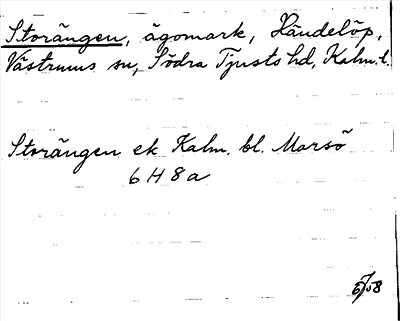 Storängen, ägomark, Händelöp,
Västrums sn, Södra Tjusts hd, Kalm. l.
Storängen ek Kalm. bl. Marsö
6 H 8 a